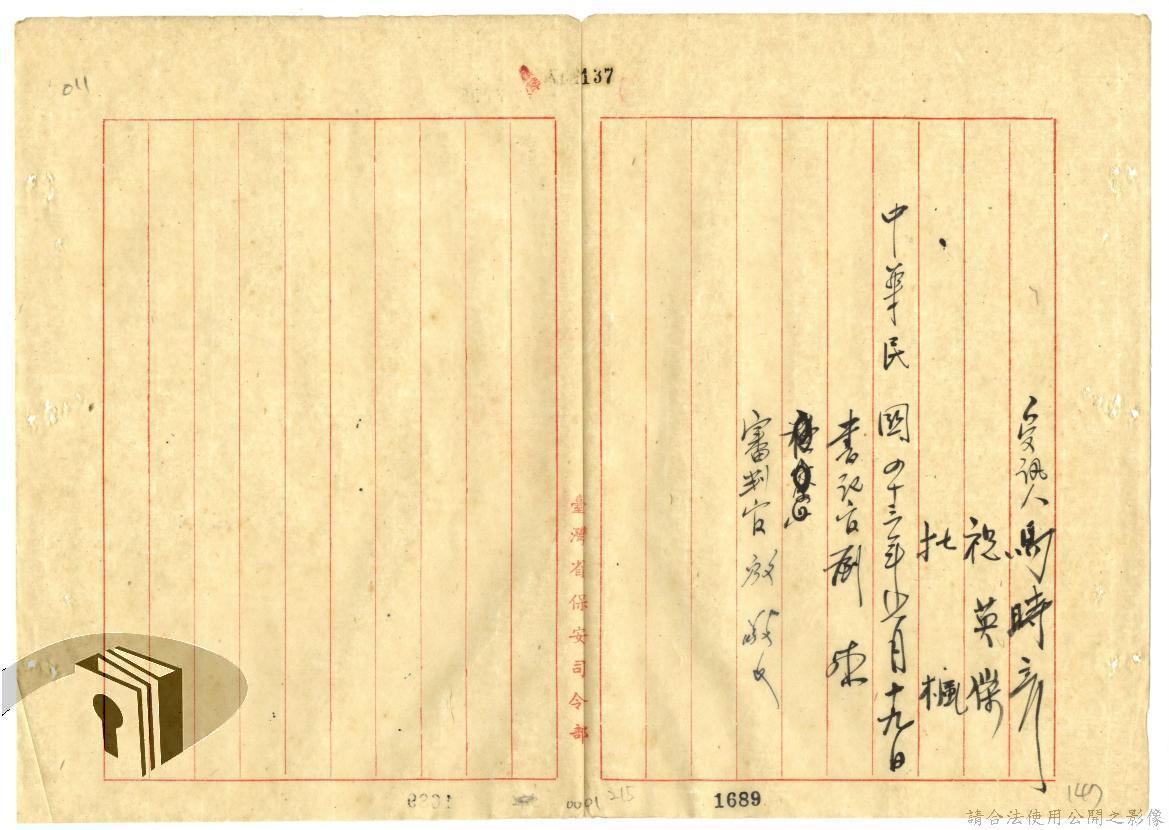 011
137
受訊人 馬時彥
祝英傑
杜楓
中華民國四十三年 月十九日
書記官
審判官
臺灣省保安司令部
1689
0001 215
147
請合法使用公開之影像